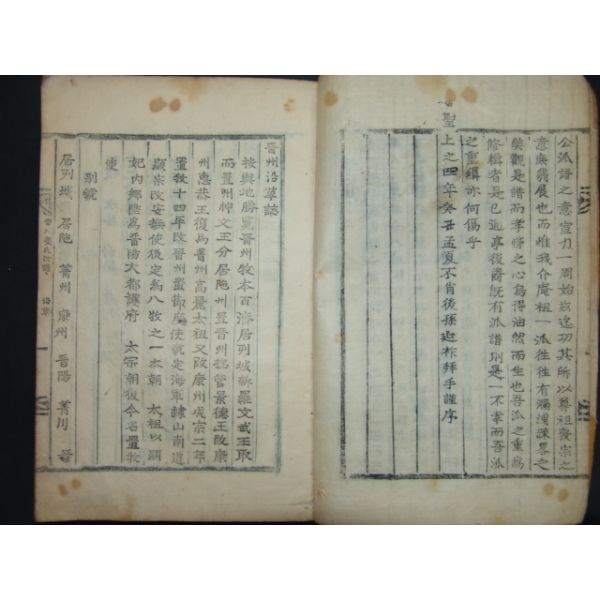 公派譜之意宣力一周始克迄功其所以尊祖敦宗之
意庶幾展也而惟我介庵祖一派徃徃有漏淺踈畧之
美觀是譜而孝悌之心爲得油然而生也吾派之重爲
修輯者是已近事後裔旣有派譜則是一不孝而吾派
之重繡亦何傷乎
聖
上之四年癸丑孟夏不肖後孫 拜手謹序
晋州沿革誌
按輿地勝覽晋州牧本百濟居列城新羅文武王取
而置州神文王分居陁州置晋州摠管景德王改康
州惠恭王復爲菁州高麗太祖又改康州成宗二年
置牧十四年改晋州置節度使號定海軍隷山南道
顯宗改安撫使後定爲八牧之一本朝 太祖以顯
妃內鄕陞爲晋陽大都護府 太宗朝後今名置牧
使
別號
居列城 居陁 菁州 康州 晋陽 菁川 晋